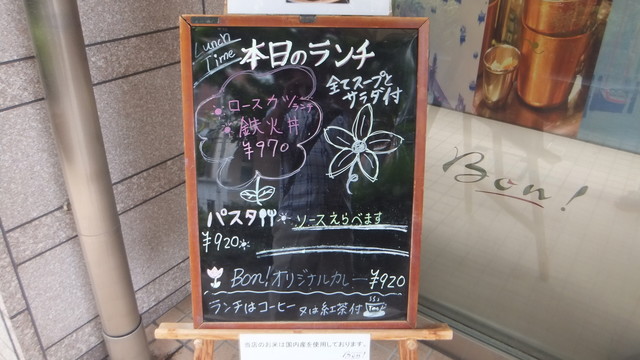 Lunch
Time
本日のランチ
全てスープと
サラダ付
ロースカツランチ
鉄火丼
¥970
パスタ
ソースえらべます
¥920
Bon!オリジナルカレー ¥920
ランチはコーヒー又は紅茶付
当店のお米は国内産を使用しております。
Bon!
Bon!